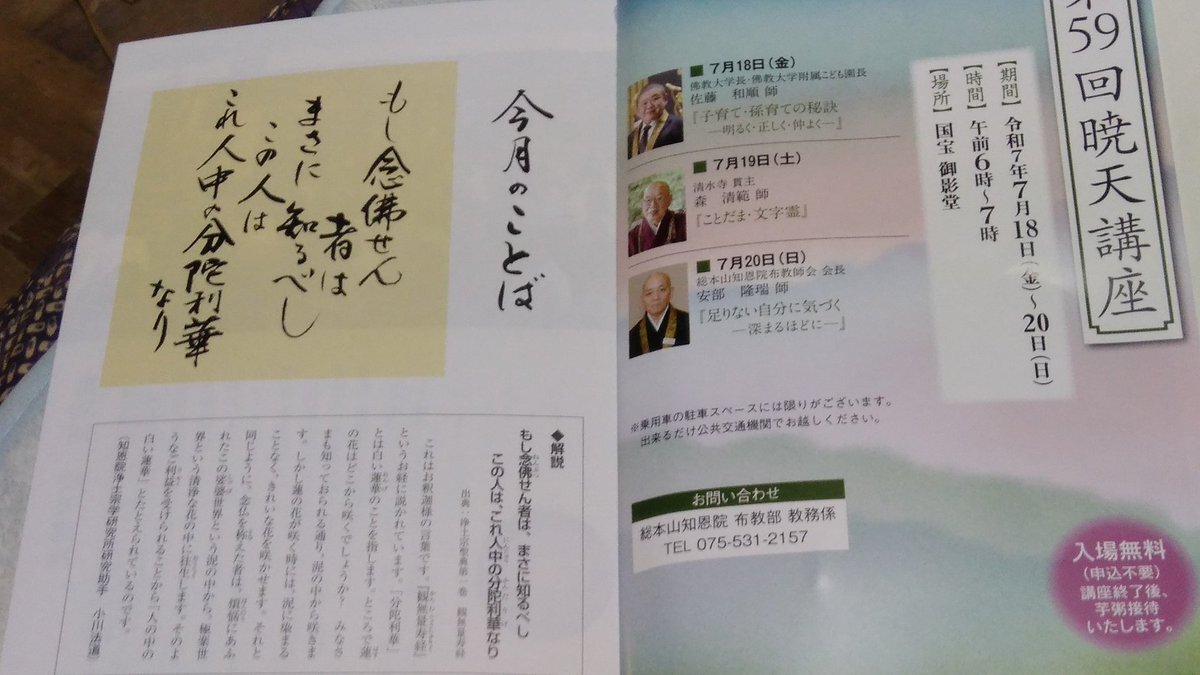 第59回暁天講座
【期間】令和7年7月18日(金)～20日(日)
【時間】午前6時～7時
【場所】国宝 御影堂
7月18日(金)
佛教大学長・佛教大学附属こども園長
佐藤 和順 師
『子育て・孫育ての秘訣
―明るく・正しく・仲よく―』
7月19日(土)
清水寺 貫主
森 清範 師
『ことだま・文字霊』
7月20日(日)
総本山知恩院布教師会 会長
安部 隆瑞 師
『足りない自分に気づく
―深まるほどに―』
※乗用車の駐車スペースには限りがございます。
出来るだけ公共交通機関でお越しください。
お問い合わせ
総本山知恩院 布教部 教務係
TEL 075-531-2157
入場無料
(申込不要)
講座終了後、
芋粥接待
いたします。
今月のことば
もし念佛せん
者は
まさに知るべし
この人は
これ人中の分陀利華
なり
◆解説
もし念佛せん者は、まさに知るべし
この人は、これ人中の分陀利華なり
出典：浄土宗聖典第一巻 観無量寿経
これはお釈迦様の言葉です。『観無量寿経』
というお経に説かれています。「分陀利華」
とは白い蓮華のことを指します。ところで蓮
の花はどこから咲くでしょうか？ みなさ
まも知っておられる通り、泥の中から咲きま
す。しかし蓮の花が咲く時には、泥に染まる
ことなく、きれいな花を咲かせます。それと
同じように、念仏を称えた者は、煩悩にあふ
れたこの娑婆世界という泥の中から、極楽世
界という清浄な花の中に往生します。そのよ
うなご利益を受けられることから「人の中の
白い蓮華」とたとえられているのです。
(知恩院浄土宗学研究所研究助手 小川法道)